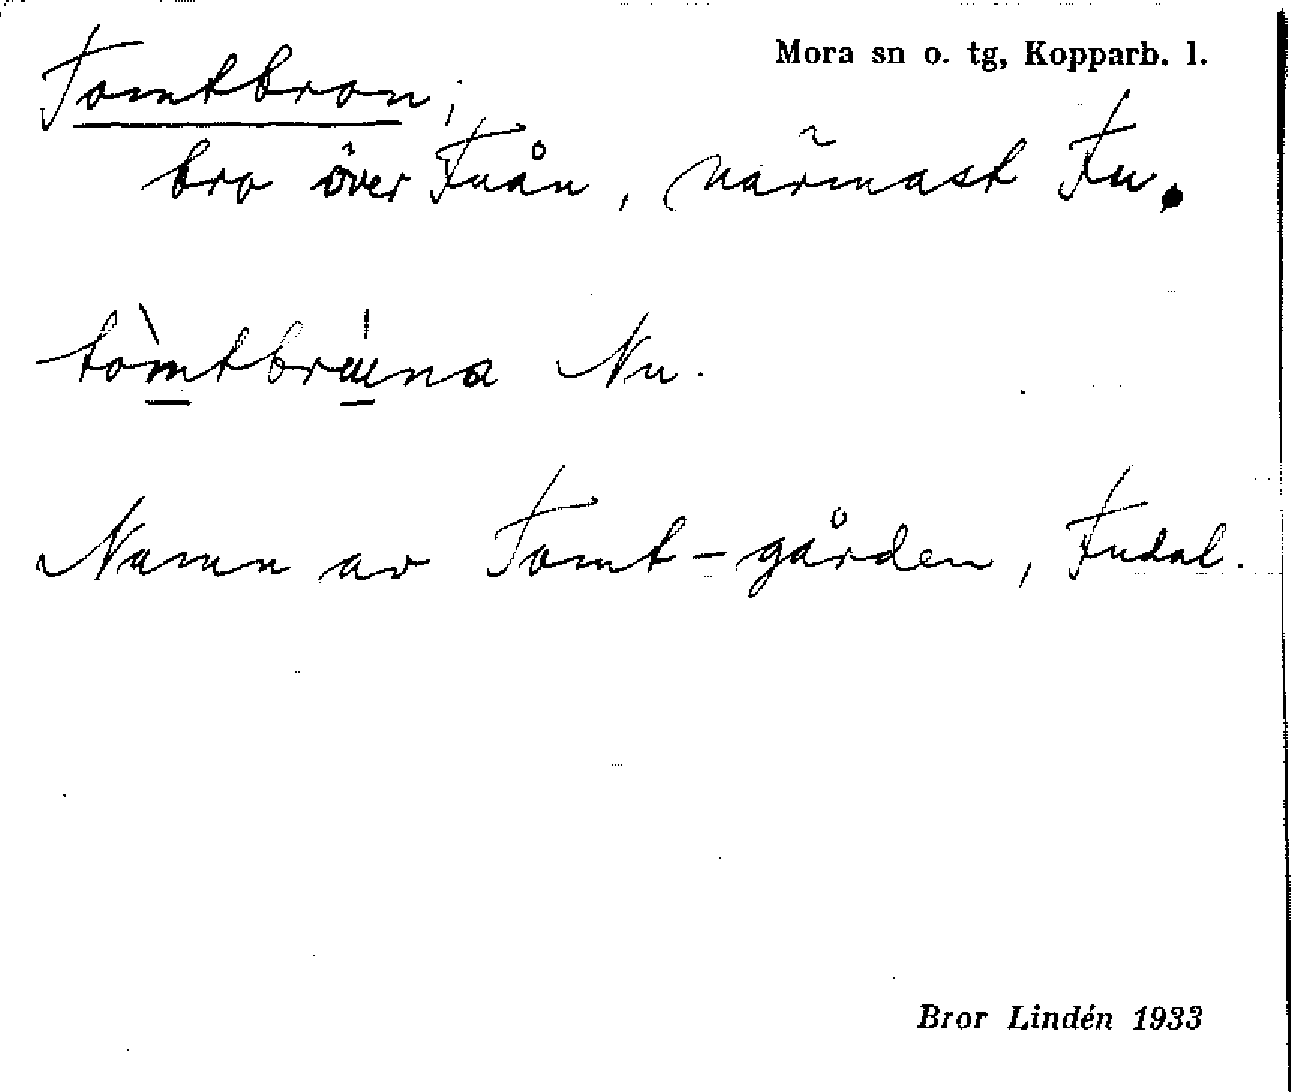 Mora sn o. tg, Kopparb. l.
Tomtbron;
bro över Fuån, närmast Fu.
tòmtbrúna Nu.
Namn av Tomt-gården, Fudal.
Bror Lindén 1933